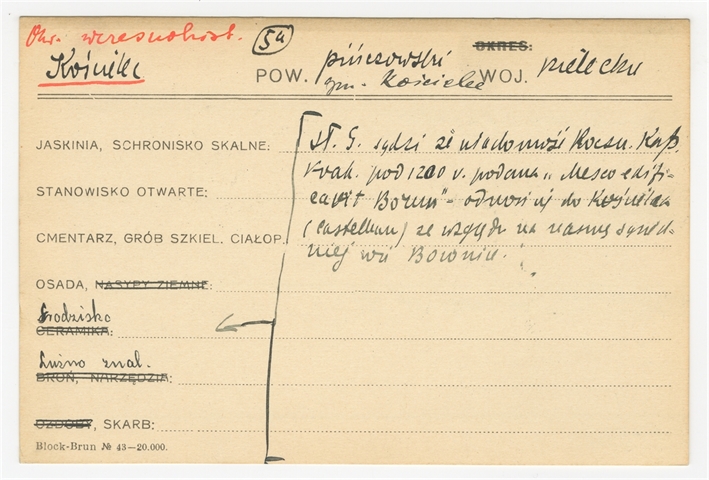 Okr. wczesnohist. 54
Kościelec POW. pińczowski OKRES:
gm. Kościelec WOJ. kieleckie
JASKINIA, SCHRONISKO SKALNE: St. G. sądzi że wiadomość Roczn. Kap.
Krak. pod 1200 r. podana „Mesco edifi-
STANOWISKO OTWARTE: cavit Borun" odnosi się do Kościelca
CMENTARZ, GRÓB SZKIEL. CIAŁOP. (castellum) ze względu na nazwę sąsied-
niej wsi
OSADA, NASYPY ZIEMNE:
Grodzisko
CERAMIKA:
Luźno znal.
BROŃ, NARZĘDZIA:
OZDOBY, SKARB:
Block-Brun № 43—20.000.